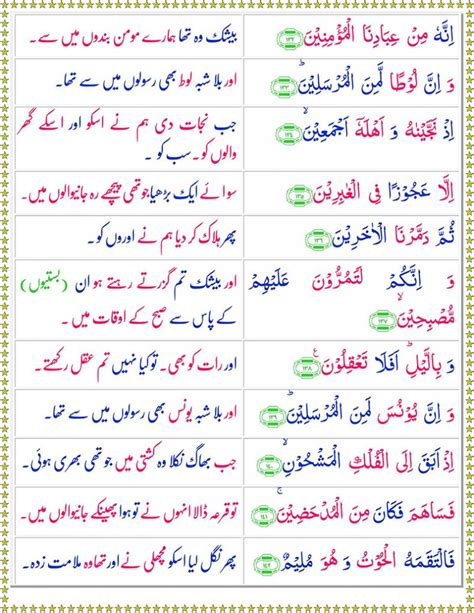 اِنَّهٗ مِنْ عِبَادِنَا الْمُؤْمِنِيْنَ ۱۳۲
بیشک وہ تھا ہمارے مومن بندوں میں سے۔
وَ اِنَّ لُوْطًا لَّمِنَ الْمُرْسَلِيْنَ ۱۳۳
اور بلا شبہ لوط بھی رسولوں میں سے تھا۔
اِذْ نَجَّيْنٰهُ وَ اَهْلَهٗۤ اَجْمَعِيْنَ ۱۳۴
جب نجات دی ہم نے اسکو اور اسکے گھر
والوں کو۔ سب کو ۔
اِلَّا عَجُوْزًا فِى الْغٰبِرِيْنَ ۱۳۵
سوائے ایک بڑھیا جو تھی پیچھے رہ جانیوالوں میں۔
ثُمَّ دَمَّرْنَا الْاٰخَرِيْنَ ۱۳۶
پھر ہلاک کر دیا ہم نے اوروں کو ۔
وَ اِنَّكُمْ لَتَمُرُّوْنَ عَلَيْهِمْ
مُّصْبِحِيْنَۙ ۱۳۷
اور بیشک تم گزرتے رہتے ہو ان (بستیوں)
کے پاس سے صبح کے اوقات میں ۔
وَ بِالَّيْلِؕ اَفَلَا تَعْقِلُوْنَ ۱۳۸ع
اور رات کو بھی۔ تو کیا نہیں تم عقل رکھتے۔
وَ اِنَّ يُوْنُسَ لَمِنَ الْمُرْسَلِيْنَؕ ۱۳۹
اور بلا شبہ یونس بھی رسولوں میں سے تھا۔
اِذْ اَبَقَ اِلَى الْفُلْكِ الْمَشْحُوْنِۙ ۱۴۰
جب بھاگ نکلا وہ کشتی میں جو تھی بھری ہوئی۔
فَسَاهَمَ فَكَانَ مِنَ الْمُدْحَضِيْنَۚ ۱۴۱
تو قرعہ ڈالا انہوں نے تو ہوا پھینکے جانیوالوں میں۔
فَالْتَقَمَهُ الْحُوْتُ وَ هُوَ مُلِيْمٌ ۱۴۲
پھر نگل لیا اسکو مچھلی نے اور تھا وہ ملامت زدہ۔